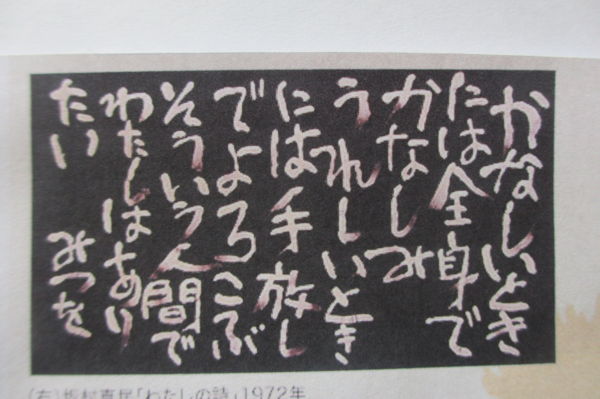 かなしいとき
には全身で
かなしみ
うれしいとき
には手放し
でよろこぶ
そういう人間で
わたしはあり
たい みつを
(右)坂村真民「わたしの詩」1972年